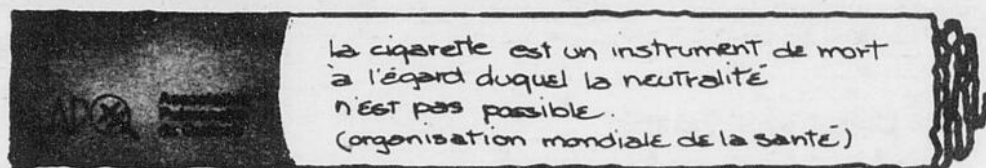 la cigarette est un instrument de mort
à l'égard duquel la neutralité
n'est pas possible.
(organisation mondiale de la santé)